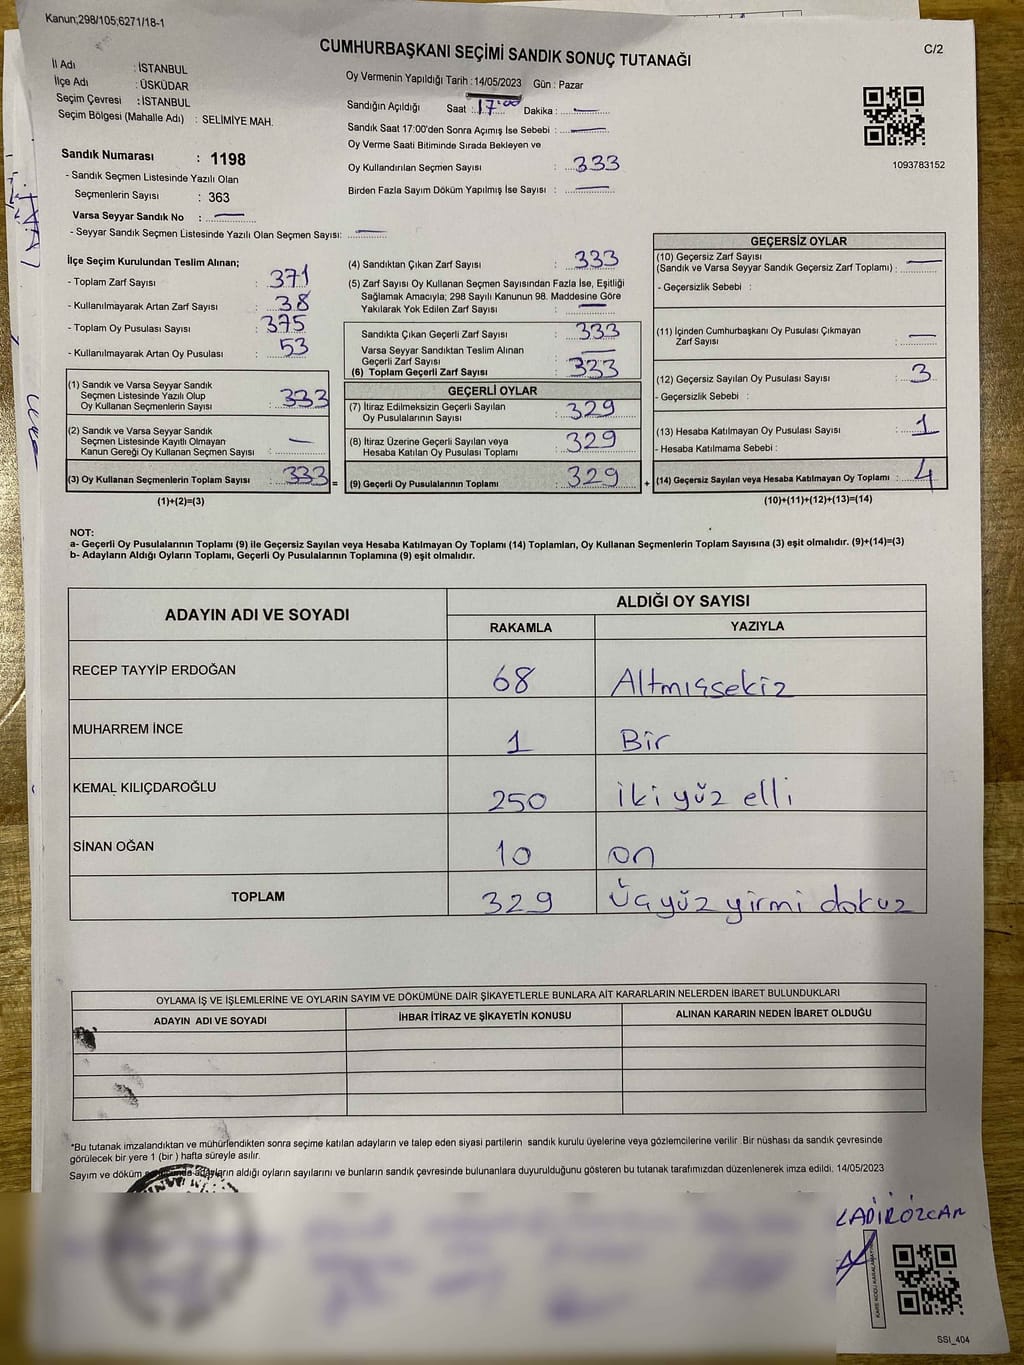 Kanun;298/105;6271/18-1
CUMHURBAŞKANI SEÇİMİ SANDIK SONUÇ TUTANAĞI
C/2
İl Adı : İSTANBUL
İlçe Adı : ÜSKÜDAR
Seçim Çevresi : İSTANBUL
Seçim Bölgesi (Mahalle Adı) : SELİMİYE MAH.
Oy Vermenin Yapıldığı Tarih : 14/05/2023 Gün : Pazar
Sandığın Açıldığı Saat : 17:00 Dakika : —
Sandık Saat 17:00'den Sonra Açımış İse Sebebi : —
Oy Verme Saati Bitiminde Sırada Bekleyen ve
Oy Kullandırılan Seçmen Sayısı : 333
Birden Fazla Sayım Döküm Yapılmış İse Sayısı : —
1093783152
Sandık Numarası : 1198
- Sandık Seçmen Listesinde Yazılı Olan
Seçmenlerin Sayısı : 363
Varsa Seyyar Sandık No : —
- Seyyar Sandık Seçmen Listesinde Yazılı Olan Seçmen Sayısı: —
İlçe Seçim Kurulundan Teslim Alınan;
- Toplam Zarf Sayısı : 371
- Kullanılmayarak Artan Zarf Sayısı : 38
- Toplam Oy Pusulası Sayısı : 375
- Kullanılmayarak Artan Oy Pusulası : 53
(1) Sandık ve Varsa Seyyar Sandık
Seçmen Listesinde Yazılı Olup
Oy Kullanan Seçmenlerin Sayısı : 333
(2) Sandık ve Varsa Seyyar Sandık
Seçmen Listesinde Kayıtlı Olmayan
Kanun Gereği Oy Kullanan Seçmen Sayısı : —
(3) Oy Kullanan Seçmenlerin Toplam Sayısı : 333 =
(1)+(2)=(3)
(4) Sandıktan Çıkan Zarf Sayısı : 333
(5) Zarf Sayısı Oy Kullanan Seçmen Sayısından Fazla İse, Eşitliği
Sağlamak Amacıyla; 298 Sayılı Kanunun 98. Maddesine Göre
Yakılarak Yok Edilen Zarf Sayısı : —
Sandıkta Çıkan Geçerli Zarf Sayısı : 333
Varsa Seyyar Sandıktan Teslim Alınan
Geçerli Zarf Sayısı : —
(6) Toplam Geçerli Zarf Sayısı : 333
GEÇERLİ OYLAR
(7) İtiraz Edilmeksizin Geçerli Sayılan
Oy Pusulalarının Sayısı : 329
(8) İtiraz Üzerine Geçerli Sayılan veya
Hesaba Katılan Oy Pusulası Toplamı : 329
(9) Geçerli Oy Pusulalarının Toplamı : 329 +
GEÇERSİZ OYLAR
(10) Geçersiz Zarf Sayısı
(Sandık ve Varsa Seyyar Sandık Geçersiz Zarf Toplamı) : —
- Geçersizlik Sebebi :
(11) İçinden Cumhurbaşkanı Oy Pusulası Çıkmayan
Zarf Sayısı : —
(12) Geçersiz Sayılan Oy Pusulası Sayısı : 3
- Geçersizlik Sebebi :
(13) Hesaba Katılmayan Oy Pusulası Sayısı : 1
- Hesaba Katılmama Sebebi :
(14) Geçersiz Sayılan veya Hesaba Katılmayan Oy Toplamı : 4
(10)+(11)+(12)+(13)=(14)
NOT:
a- Geçerli Oy Pusulalarının Toplamı (9) ile Geçersiz Sayılan veya Hesaba Katılmayan Oy Toplamı (14) Toplamları, Oy Kullanan Seçmenlerin Toplam Sayısına (3) eşit olmalıdır. (9)+(14)=(3)
b- Adayların Aldığı Oyların Toplamı, Geçerli Oy Pusulalarının Toplamına (9) eşit olmalıdır.
ADAYIN ADI VE SOYADI
ALDIĞI OY SAYISI
RAKAMLA YAZIYLA
RECEP TAYYİP ERDOĞAN 68 Altmışsekiz
MUHARREM İNCE 1 Bir
KEMAL KILIÇDAROĞLU 250 iki yüz elli
SİNAN OĞAN 10 on
TOPLAM 329 Üçyüz yirmi dokuz
OYLAMA İŞ VE İŞLEMLERİNE VE OYLARIN SAYIM VE DÖKÜMÜNE DAİR ŞİKAYETLERLE BUNLARA AİT KARARLARIN NELERDEN İBARET BULUNDUKLARI
ADAYIN ADI VE SOYADI İHBAR İTİRAZ VE ŞİKAYETİN KONUSU ALINAN KARARIN NEDEN İBARET OLDUĞU
*Bu tutanak imzalandıktan ve mühürlendikten sonra seçime katılan adayların ve talep eden siyasi partilerin sandık kurulu üyelerine veya gözlemcilerine verilir .Bir nüshası da sandık çevresinde
görülecek bir yere 1 (bir ) hafta süreyle asılır.
Sayım ve döküm adayların aldığı oyların sayılarını ve bunların sandık çevresinde bulunanlara duyurulduğunu gösteren bu tutanak tarafımızdan düzenlenerek imza edildi. 14/05/2023
KADİR ÖZCAN
SSI_404